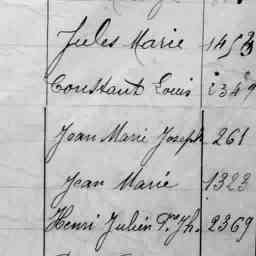 Jules Marie 1453
Constant Louis 1349
Jean Marie Joseph 261
Jean Marie 1323
Henri Julien Pre Jh. 2369